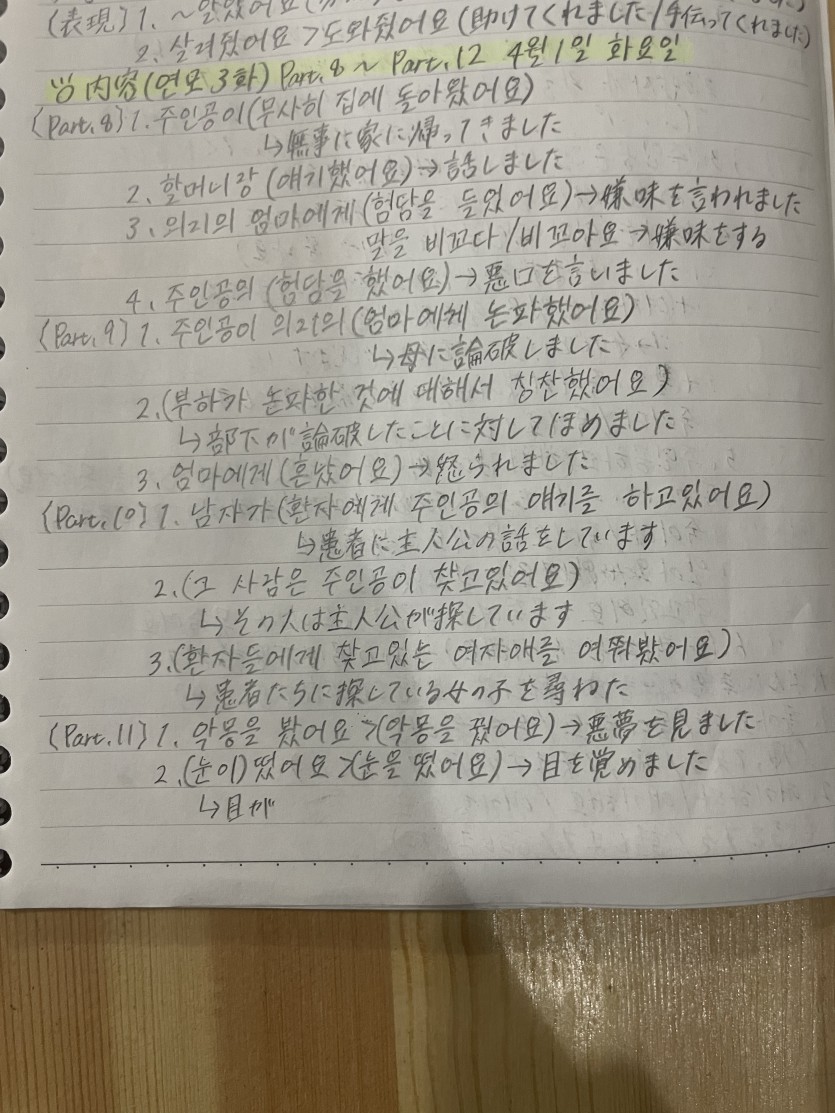 (表現) 1. ~알았어요
2. 살려줬어요 > 도와줬어요 (助けてくれました / 手伝ってくれました)
内容 (연모 3화) Part.8 ~ Part.12 4월 1일 화요일
(Part.8) 1. 주인공이 (무사히 집에 돌아왔어요)
↳ 無事に家に帰ってきました
2. 할머니랑 (얘기했어요) → 話しました
3. 의리의 엄마에게 (험담을 들었어요) → 嫌味を言われました
말을 비꼬다 / 비꼬아요 → 嫌味をする
4. 주인공의 (험담을 했어요) → 悪口を言いました
(Part.9) 1. 주인공이 의리의 (엄마에게 논파했어요)
↳ 母に論破しました
2. (부하가 논파한 것에 대해서 칭찬했어요)
↳ 部下が論破したことに対してほめました
3. 엄마에게 (혼났어요) → 怒られました
(Part.10) 1. 남자가 (환자에게 주인공의 얘기를 하고있어요)
↳ 患者に主人公の話をしています
2. (그 사람은 주인공이 찾고있어요)
↳ その人は主人公が探しています
3. (환자들에게 찾고있는 여자애를 여쭤봤어요)
↳ 患者たちに探している女の子を尋ねた
(Part.11) 1. 악몽을 봤어요 > (악몽을 꿨어요) → 悪夢を見ました
2. (눈이) 떴어요 > (눈을 떴어요) → 目を覚めました
↳ 目が